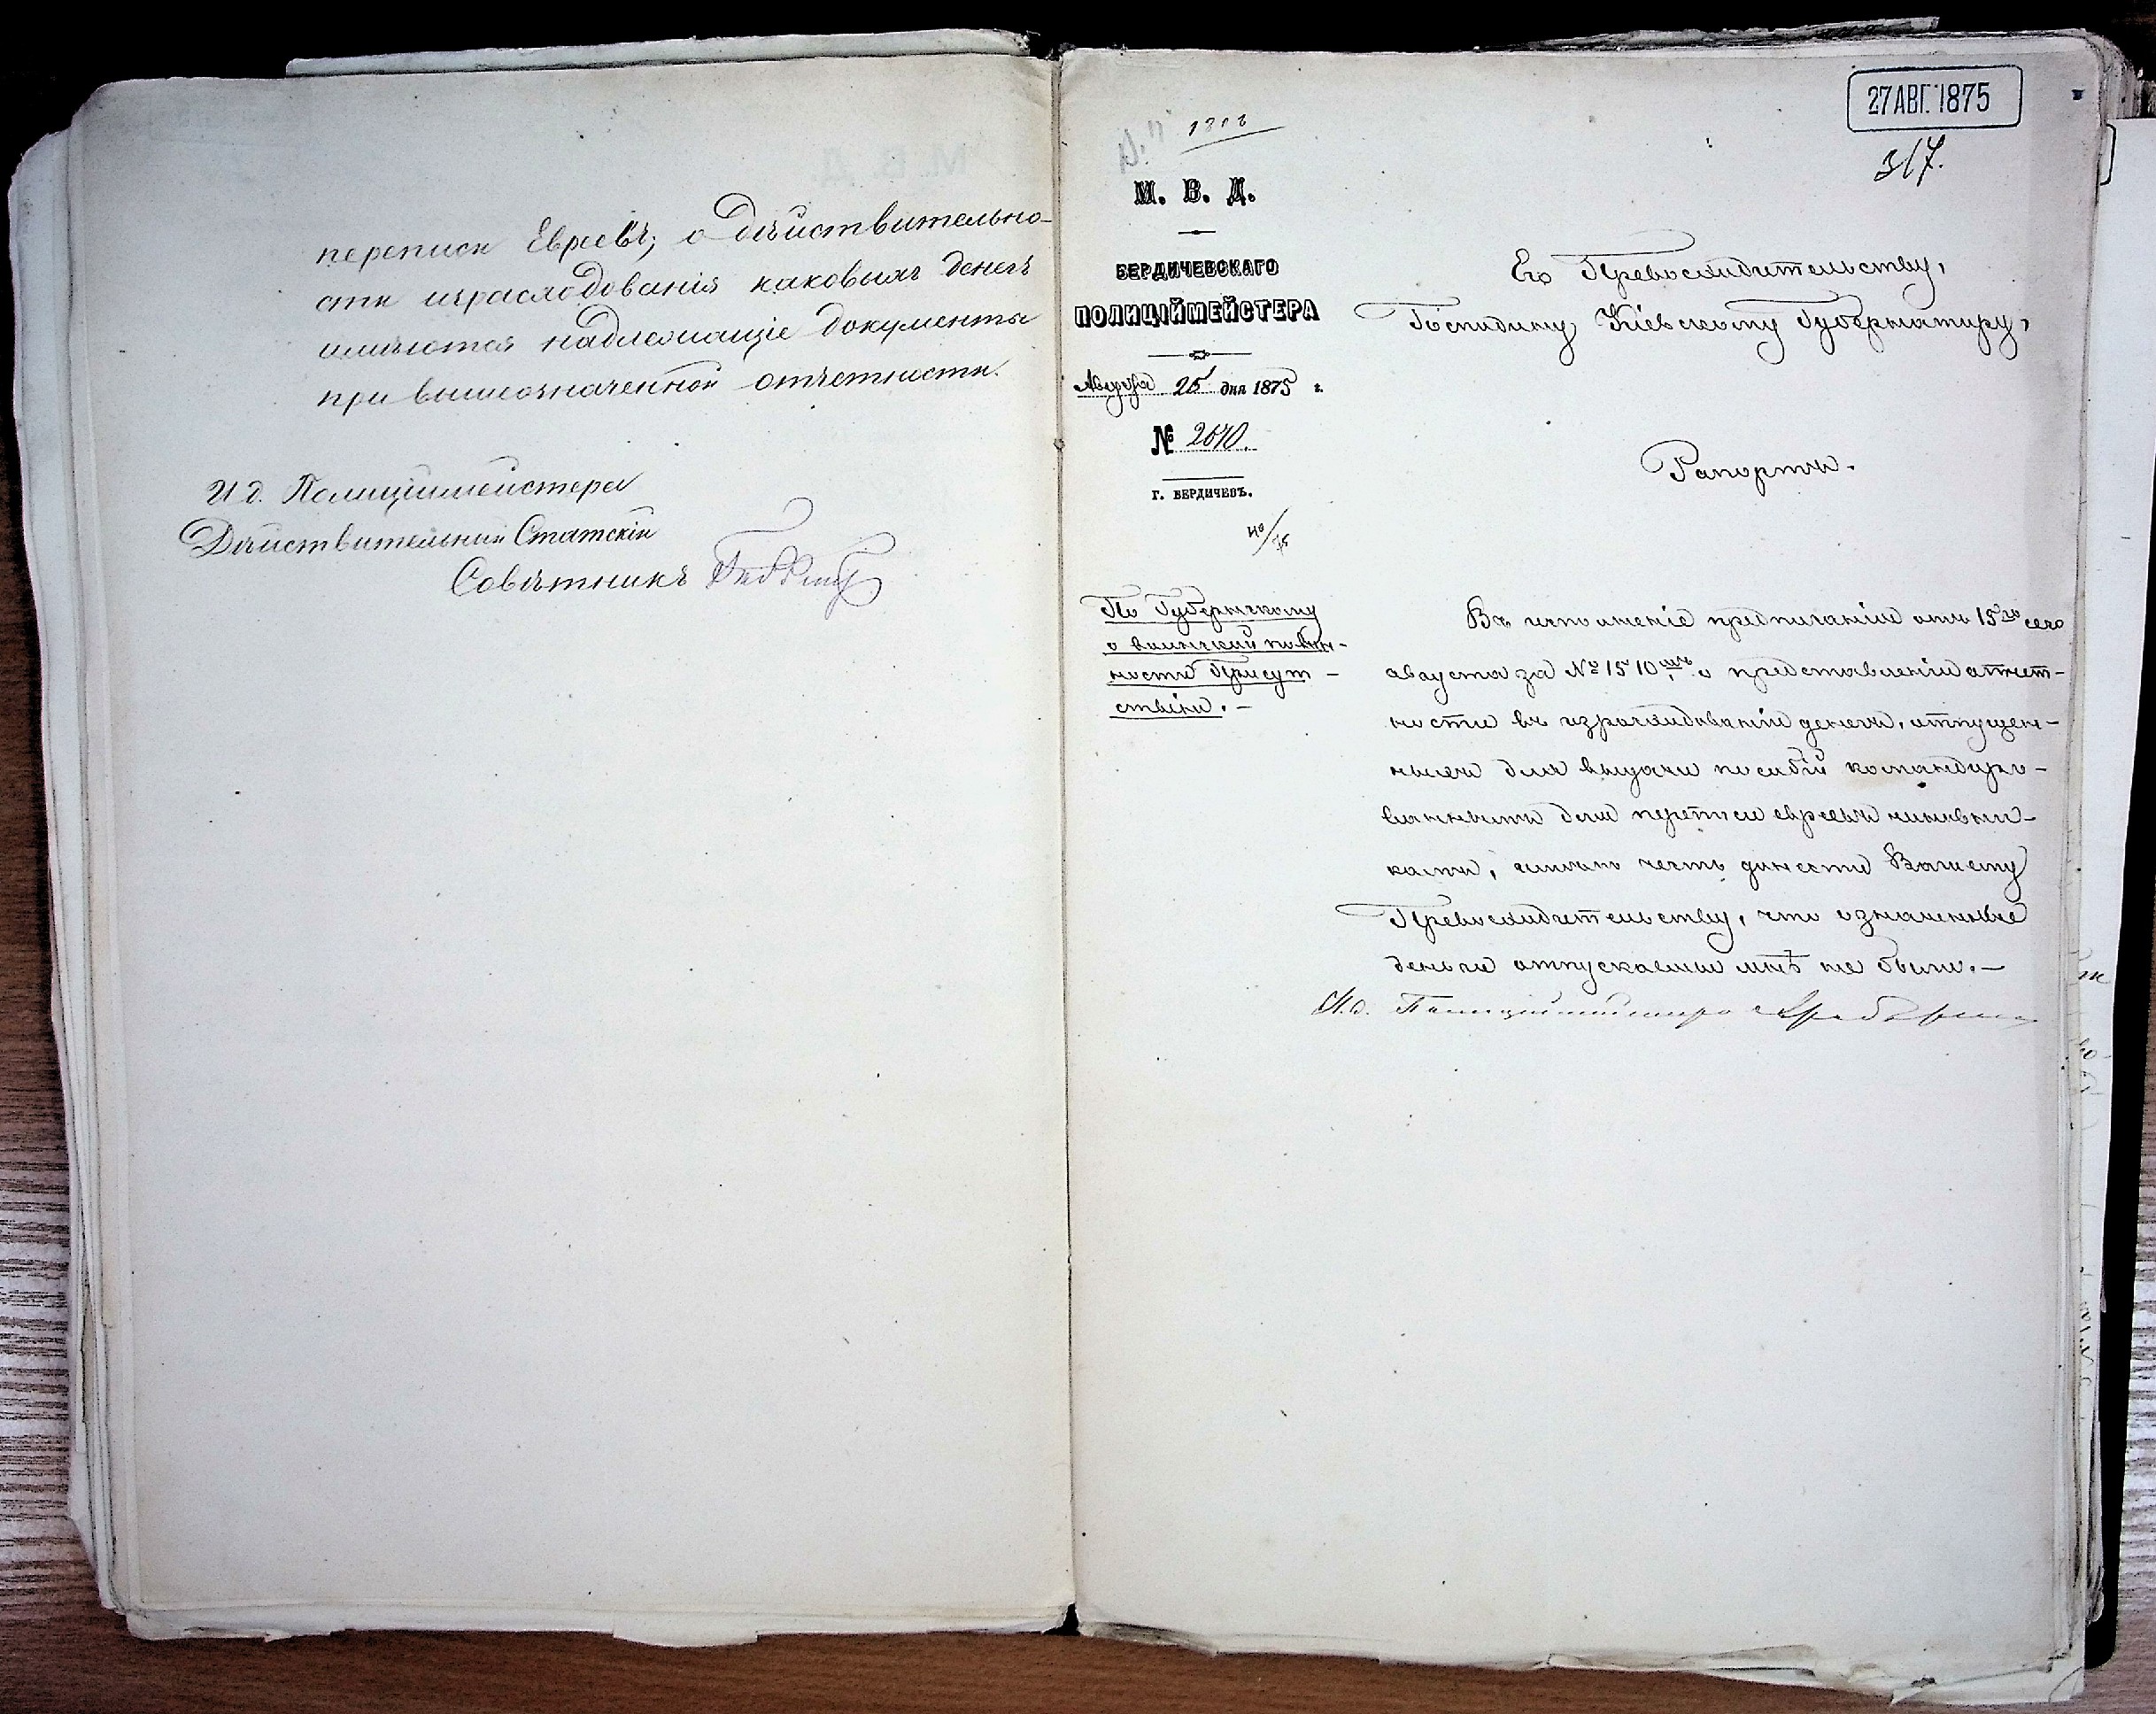 переписи Евреевъ; о дѣйствительно-
сти израсходованія каковыхъ денегъ
имѣются надлежащіе документы
при вышеозначенной отчетности.
И д. Полиціймейстера
Дѣйствительный Статскій
Совѣтникъ
27 АВГ. 1875
317.
М. В. Д.
БЕРДИЧЕВСКАГО
ПОЛИЦІЙМЕЙСТЕРА
Августа 25 дня 1875 г.
№ 2640.
Г. БЕРДИЧЕВЪ.
По Губернскому
о воинской повин-
ности Присут-
ствію.-
Его Превосходительству,
Господину Кіевскому Губернатору,
Рапортъ.
Въ исполненіе предписанія отъ 15го сего
августа за № 1510, о представленіи отчет-
ности въ израсходованіи денегъ, отпущен-
ныхъ для выдачи пособій командиро-
ваннымъ для переписи евреевъ чиновни-
камъ, имѣю честь донести Вашему
Превосходительству, что означенные
деньги отпускаемы мнѣ не были.-
И.д. Полиціймейстера